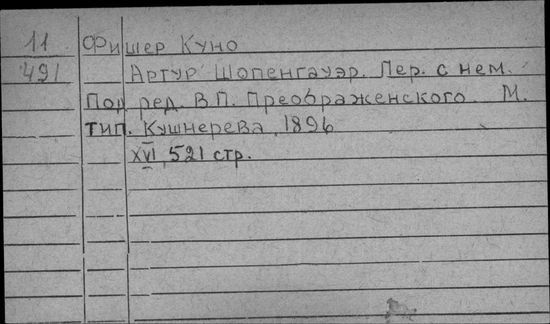 11 Фишер Куно
491 Артур Шопенгауэр. Пер. с нем.
Под ред. В.П. Преображенского. М.
тип. Кушнерева, 1896
XVI, 521 стр.